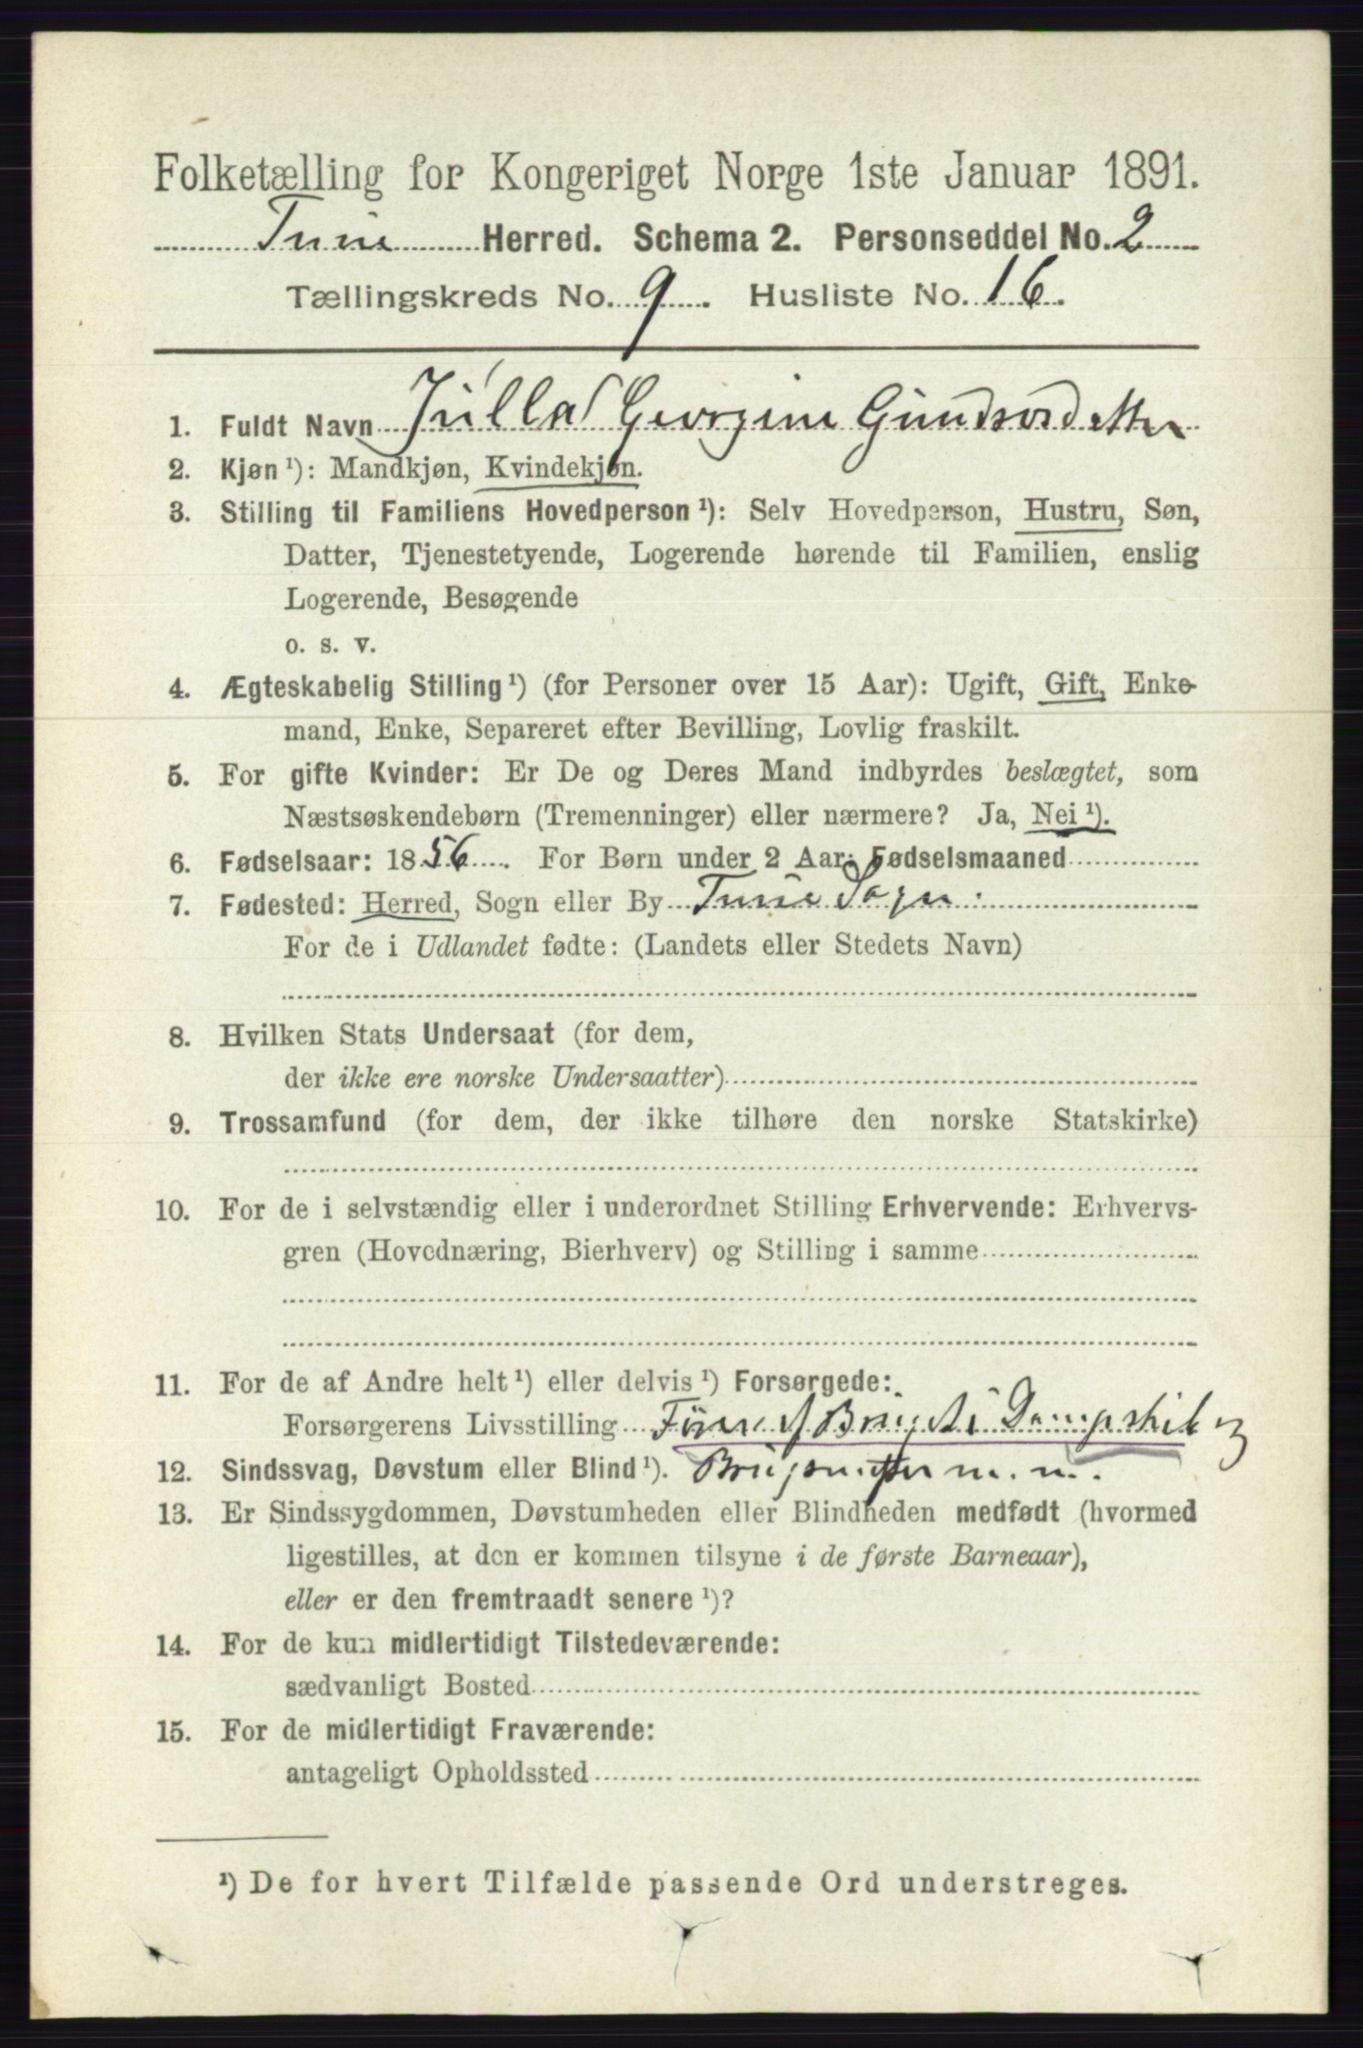 Folketælling for Kongeriget Norge 1ste Januar 1891.
Tune Herred. Schema 2. Personseddel No. 2
Tællingskreds No. 9. Husliste No. 16.
1. Fuldt Navn Julla Georgine Gundersdatter
2. Kjøn ¹): Mandkjøn, Kvindekjøn.
3. Stilling til Familiens Hovedperson ¹): Selv Hovedperson, Hustru, Søn,
Datter, Tjenestetyende, Logerende hørende til Familien, enslig
Logerende, Besøgende
o. s. v.
4. Ægteskabelig Stilling ¹) (for Personer over 15 Aar): Ugift, Gift, Enke-
mand, Enke, Separeret efter Bevilling, Lovlig fraskilt.
5. For gifte Kvinder: Er De og Deres Mand indbyrdes beslægtet, som
Næstsøskendebørn (Tremenninger) eller nærmere? Ja, Nei ¹).
6. Fødselsaar: 1856. For Børn under 2 Aar: Fødselsmaaned
7. Fødested: Herred, Sogn eller By Tune Sogn.
For de i Udlandet fødte: (Landets eller Stedets Navn)
8. Hvilken Stats Undersaat (for dem,
der ikke ere norske Undersaatter)
9. Trossamfund (for dem, der ikke tilhøre den norske Statskirke)
10. For de i selvstændig eller i underordnet Stilling Erhvervende: Erhvervs-
gren (Hovednæring, Bierhverv) og Stilling i samme
11. For de af Andre helt ¹) eller delvis ¹) Forsørgede:
Forsørgerens Livsstilling Fører af Dampskib
12. Sindssvag, Døvstum eller Blind ¹). m. m.
13. Er Sindssygdommen, Døvstumheden eller Blindheden medfødt (hvormed
ligestilles, at den er kommen tilsyne i de første Barneaar),
eller er den fremtraadt senere ¹)?
14. For de kun midlertidigt Tilstedeværende:
sædvanligt Bosted
15. For de midlertidigt Fraværende:
antageligt Opholdssted
¹) De for hvert Tilfælde passende Ord understreges.